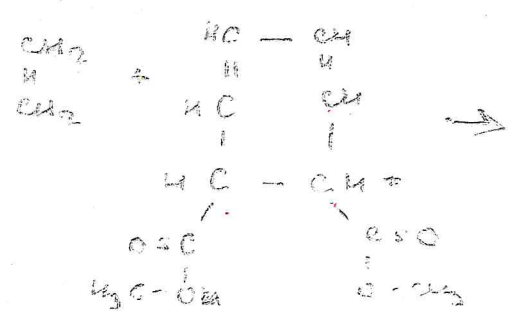 HC — CH
CH2
H H
H + 
CH2 HC CH →
H C — C H
O = C C = O
H3C - O O - CH3